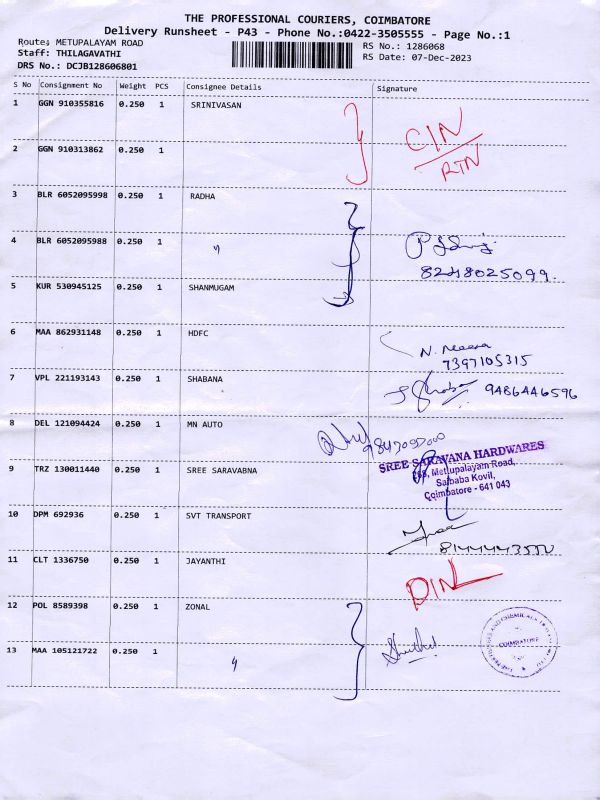 THE PROFESSIONAL COURIERS, COIMBATORE
Delivery Runsheet - P43 - Phone No.:0422-3505555 - Page No.:1
Route: METUPALAYAM ROAD
Staff: THILAGAVATHI
DRS No.: DCJB128606801
RS No.: 1286068
RS Date: 07-Dec-2023
S No Consignment No Weight PCS Consignee Details Signature
1 GGN 910355816 0.250 1 SRINIVASAN
CIN
RTN
2 GGN 910313862 0.250 1
3 BLR 6052095998 0.250 1 RADHA
4 BLR 6052095988 0.250 1 〃
8248025099
5 KUR 530945125 0.250 1 SHANMUGAM
6 MAA 862931148 0.250 1 HDFC
N. Meena
7397105315
7 VPL 221193143 0.250 1 SHABANA
9486446596
8 DEL 121094424 0.250 1 MN AUTO
9 TRZ 130011440 0.250 1 SREE SARAVABNA
SREE SARAVANA HARDWARES
Mettupalayam Road,
Saibaba Kovil,
Coimbatore - 641 043
10 DPM 692936 0.250 1 SVT TRANSPORT
11 CLT 1336750 0.250 1 JAYANTHI
DIN
12 POL 8589398 0.250 1 ZONAL
COIMBATORE
13 MAA 105121722 0.250 1 〃